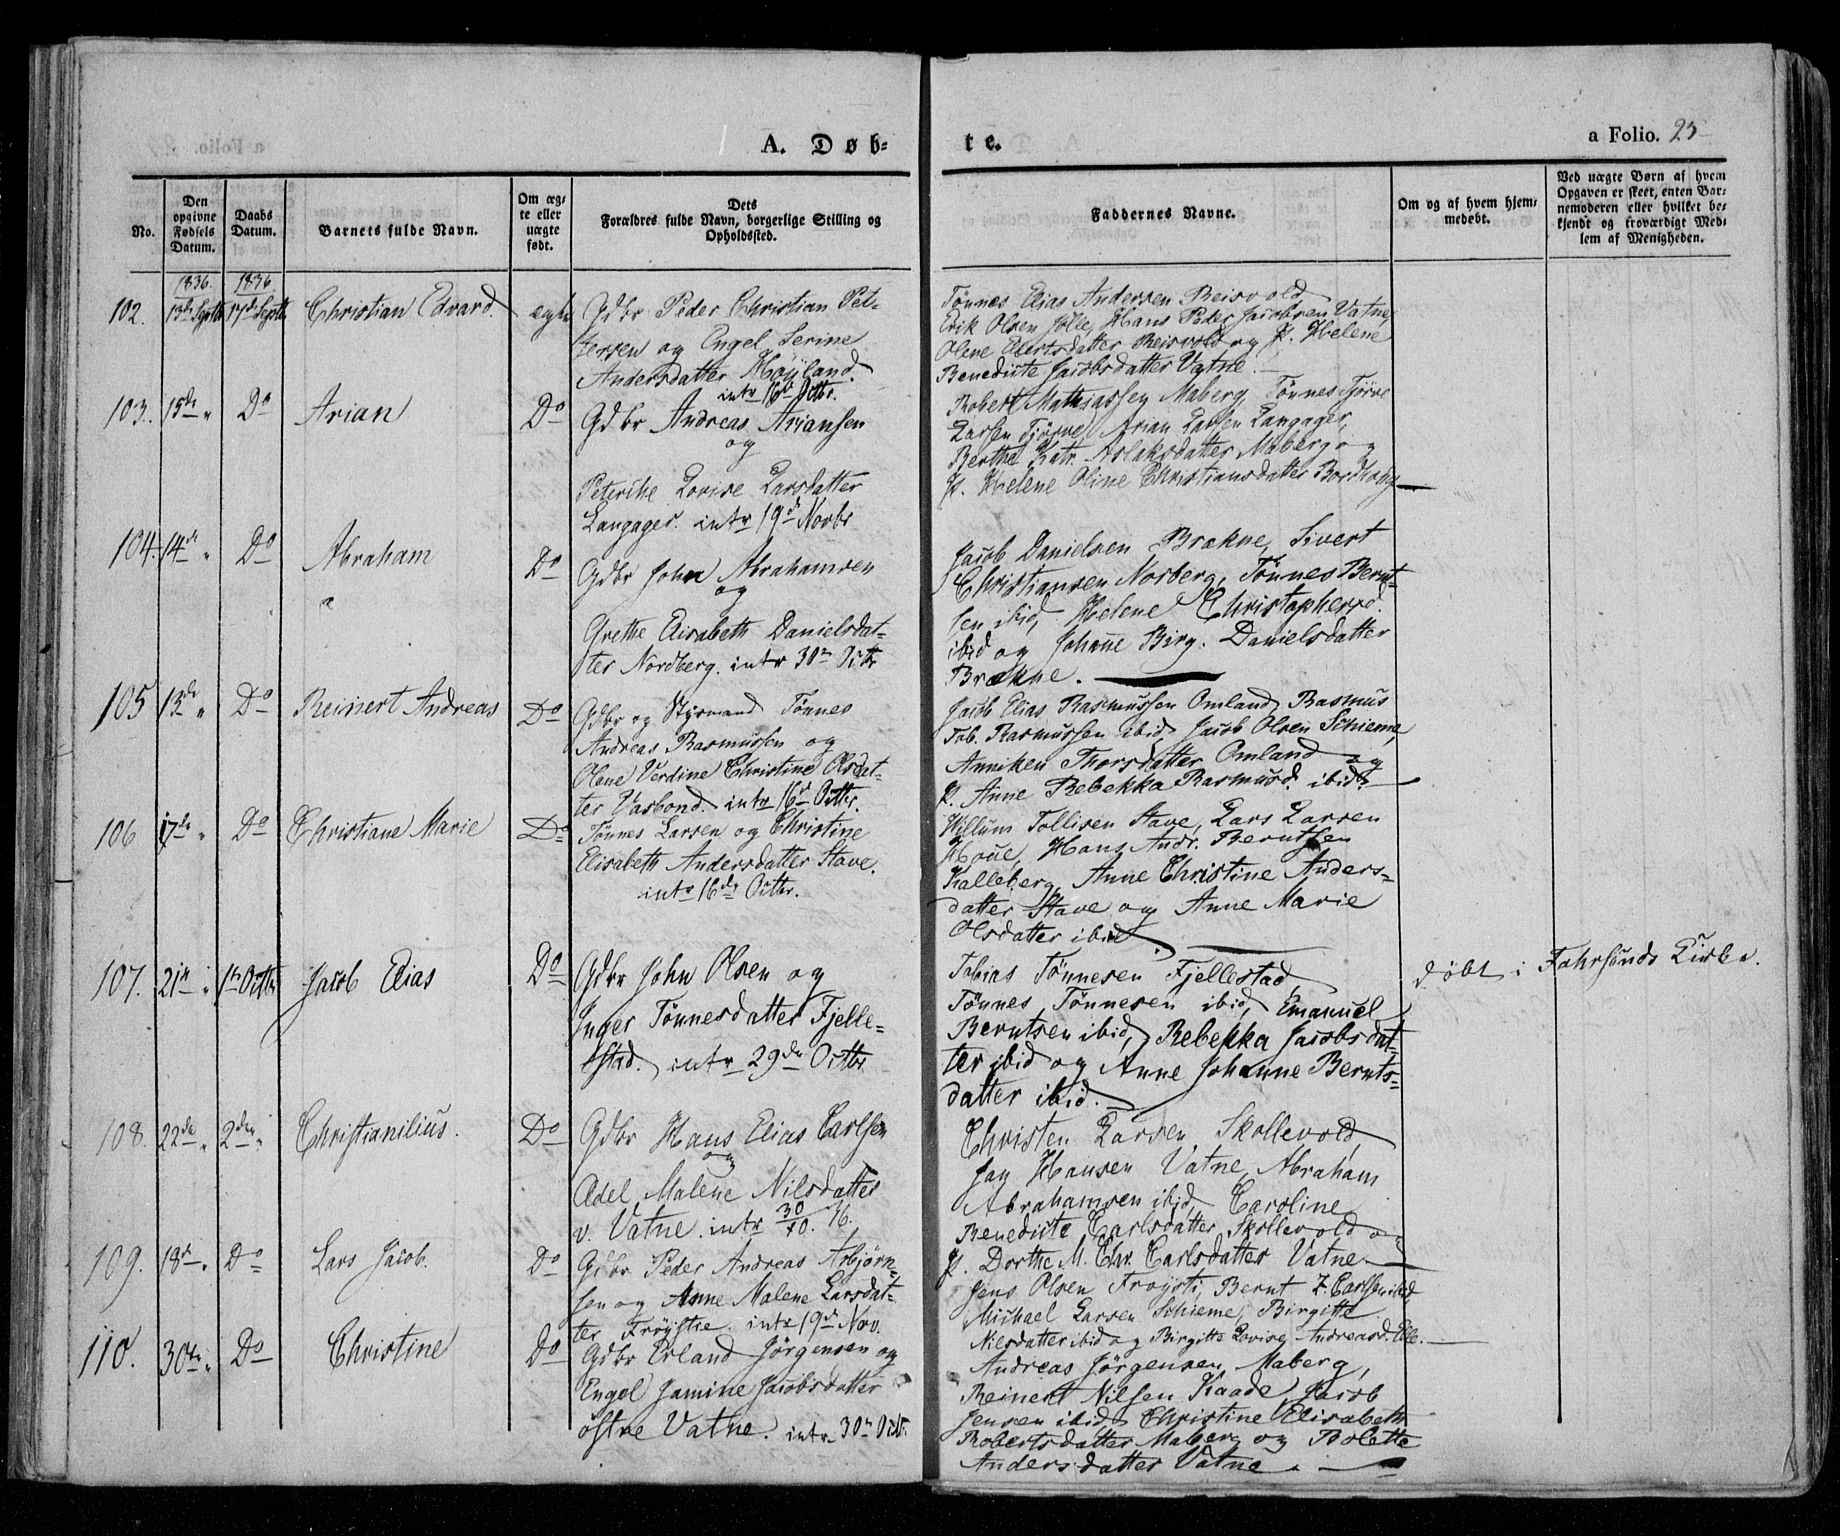 A. Døb- te.
a Folio. 25
No.
Den opgivne Fødsels Datum.
Daabs Datum.
Barnets fulde Navn.
Om ægte eller uægte født.
Dets Forældres fulde Navn, borgerlige Stilling og Opholdssted.
Faddernes Navne.
Om og af hvem hjemmedøbt.
Ved uægte Børn af hvem Opgaven er skeet, enten Barnemoderen eller hvilket bekjendt og troværdigt Medlem af Menigheden.
1836. 1836.
102. 13de Septbr 17de Septbr Christian Edvard. ægte Gdbr Peder Christian Pet-
tersen og Engel Serine
Andersdatter Høyland.
intr 16de Octbr.
Tönnes Elias Andersen Reisvold
Erik Olsen Jölle, Hans Peder Jacobsen Vatne,
Olene Elertsdatter Reisvold og P. Helene
Benedicte Jacobsdatter Vatne.
103. 15de " Do Arian Do Gdbr Andreas Ariansen
og
Peterike Lovise Larsdatter
Langager. intr 19de Novbr
Robert Mathiassen Maberg, Tönnes Tjörve
Larsen Tjörve, Arian Larsen Langager,
Berthe Katr. Aslaksdatter Maberg og
P. Helene Oline Christiansdatter
104. 14de " Do Abraham Do Gdbr John Abrahamsen
og
Grethe Elisabeth Danielsdat-
ter Nordberg. intr 30te Octbr
Jacob Danielsen Brækne, Sivert
Christiansen Norberg, Tönnes Bernt-
sen ibid, Helene Christophersd.
ibid og Johane Birg. Danielsdatter
Brækne.
105 13de " Do Reinert Andreas Do Gdbr og Styrmand Tönnes
Andreas Rasmussen og
Olene Verdine Christine Olsdat-
ter Vasbond. intr 16de Octbr.
Jacob Elias Rasmussen Omland, Rasmus
Tob. Rasmussen ibid, Jacob Olsen Schieme,
Anniken Thorsdatter Omland og
P. Anne Rebekka Rasmusd. ibid.
106 17de " Do Christiane Marie Do Tönnes Larsen og Christine
Elisabeth Andersdatter Stave.
intr 16de Octbr.
Willum Tollisen Stave, Lars Larsen
Houe, Hans Andr. Berntsen
Kalleberg, Anne Christine Anders-
datter Stave og Anne Marie
Olsdatter ibid.
107. 21de " 1te Octbr Jacob Elias Do Gdbr John Olsen og
Inger Tönnesdatter Fjelle-
stad. intr 29de Octbr
Tobias Tönnesen Fjellestad,
Tönnes Tönnesen ibid, Emanuel
Berntsen ibid, Rebekka Jacobsdat-
ter ibid og Anne Johanne Bernts-
datter ibid.
døbt i Fahrsunds Kirke.
108. 22de " 2den " Christianilius. Do Gdbr Hans Elias Carlsen
og
Adel Malene Nilsdatter
v. Vatne. intr 30/10. 36.
Christen Larsen Skollevold,
Jan Hansen Vatne, Abraham
Abrahamsen ibid, Caroline
Benedicte Carlsdatter Skollevold og
P. Dorthe M. Chr. Carlsdatter Vatne.
109. 18de " Do Lars Jacob. Do Gdbr Peder Andreas Asbjørn-
sen og Anne Malene Larsdat-
ter Frøystie. intr 19de Nov.
Jens Olsen Froysti, Bernt Z. Carlsen ibid,
Michael Larsen Schieme, Birgitte
Nilsdatter ibid og Birgitte Lovise Andreasd.
110. 30te " Do Christine Do Gdbr Erland Jörgensen og
Engel Jamine Jacobsdatter
östre Vatne. intr 30te Octbr.
Andreas Jörgensen Maberg,
Reinert Nilsen Kaade, Jacob
Jensen ibid, Christine Elisabeth
Robertsdatter Maberg og Bolette
Andersdatter Vatne.